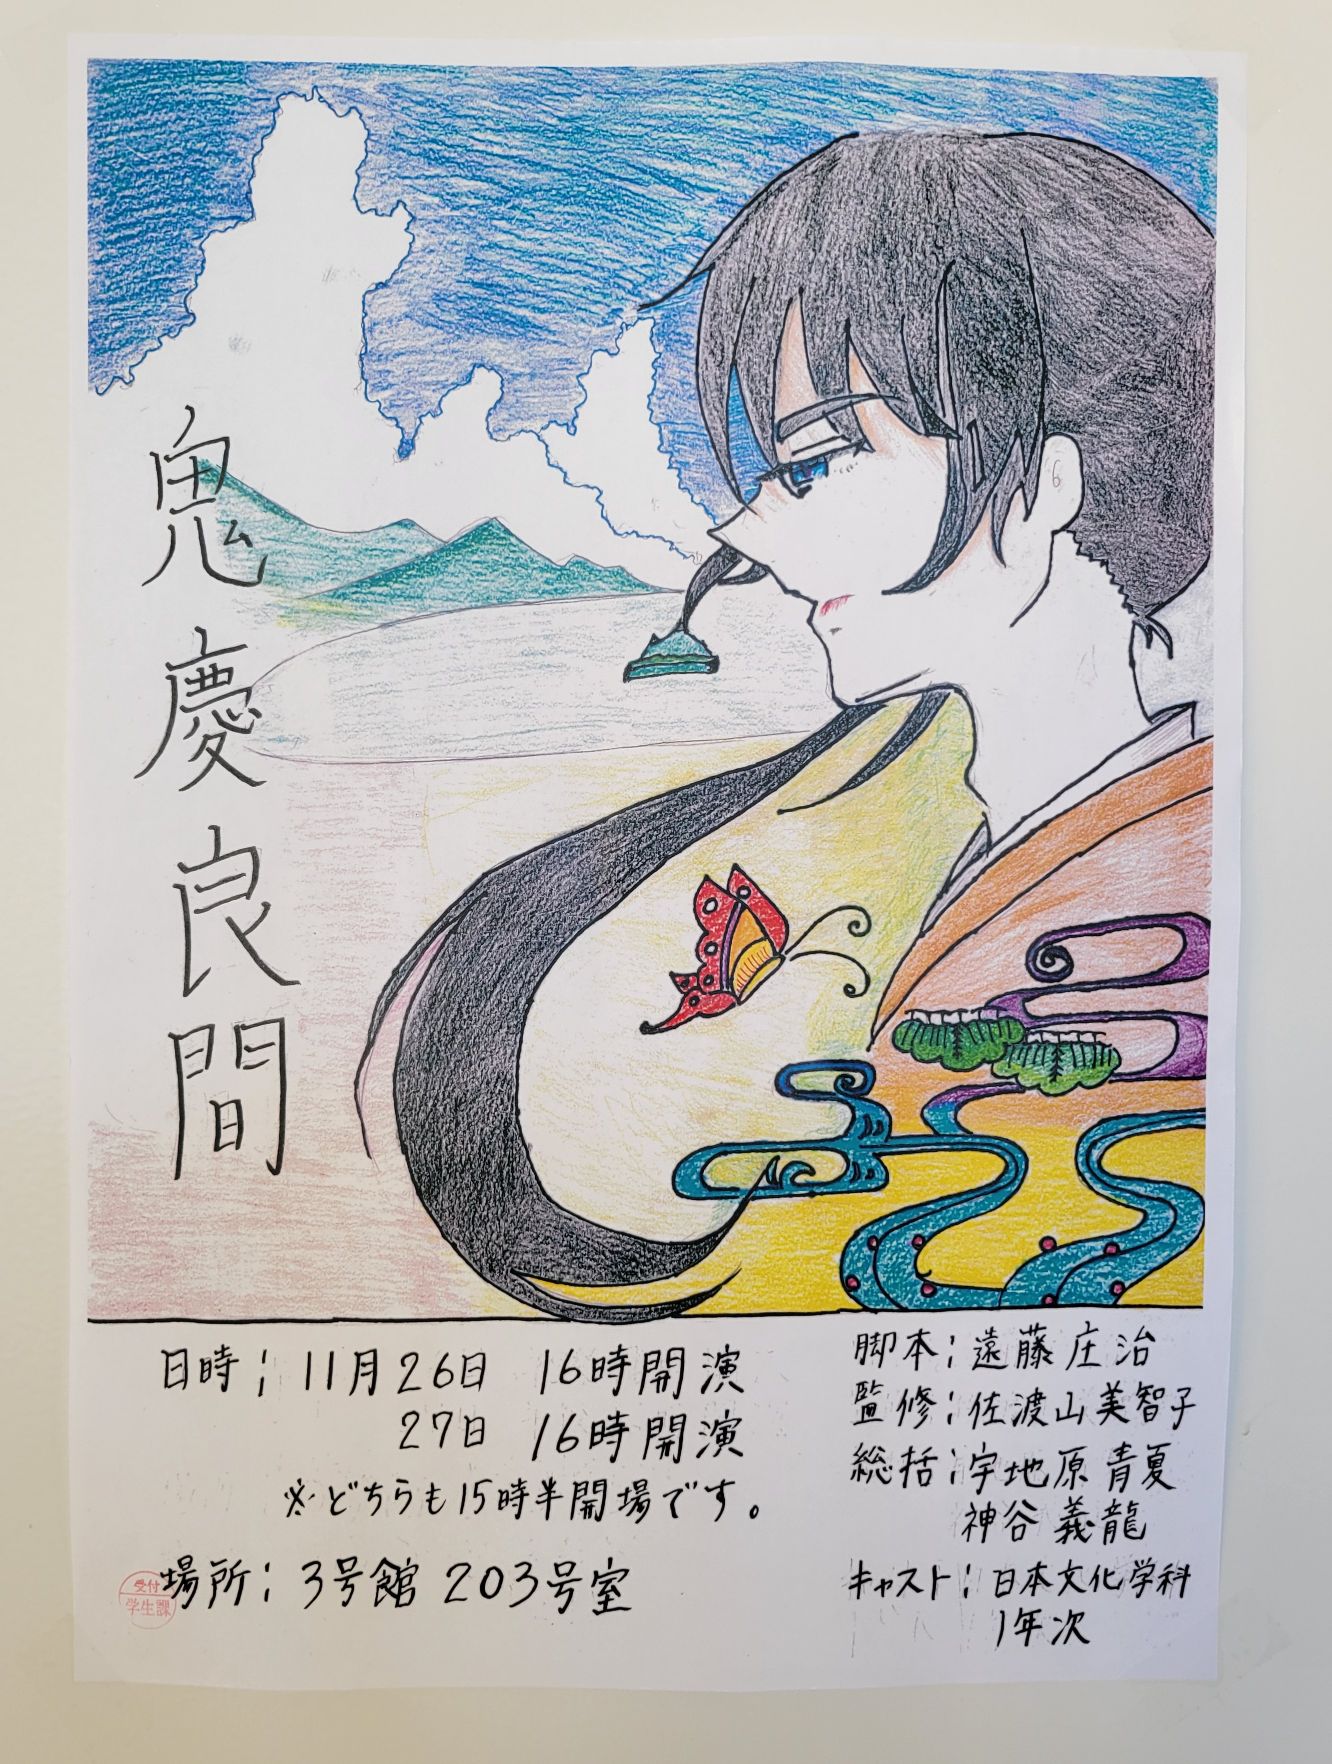 鬼慶良間
日時: 11月26日 16時開演
27日 16時開演
※どちらも15時半開場です。
場所: 3号館 203号室
脚本: 遠藤庄治
監修: 佐渡山美智子
総括: 宇地原青夏
神谷義龍
キャスト: 日本文化学科
1年次
受付
学生課